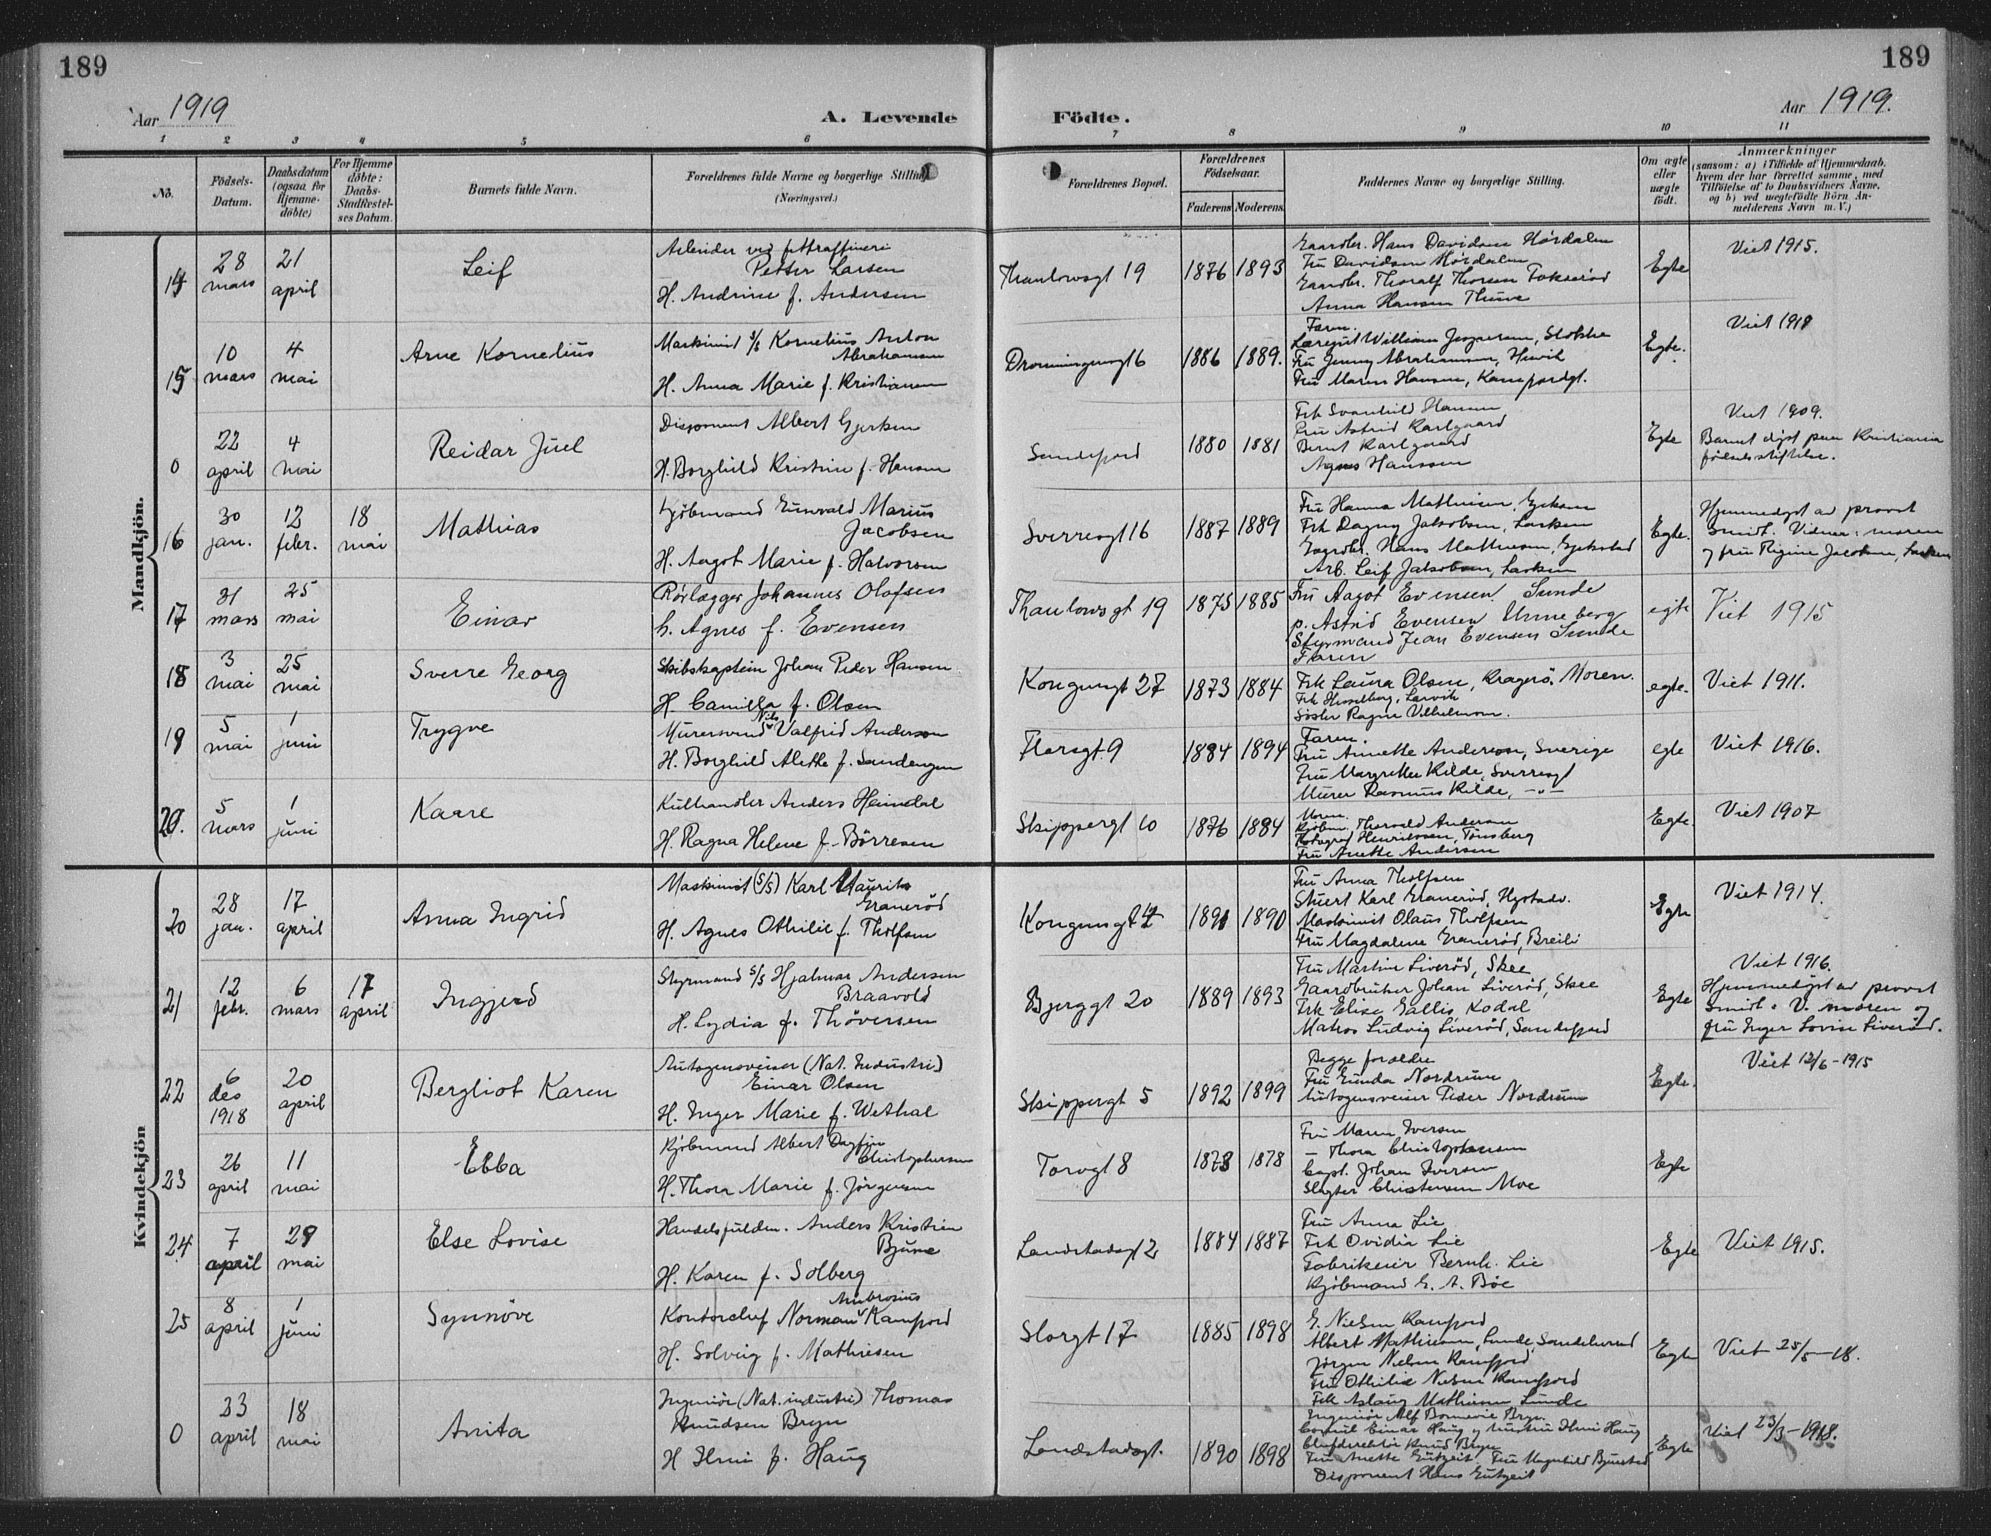 189
189
Aar 1919
A. Levende
Födte.
Aar 1919.
1 2 3 4 5 6 7 8 9 10 11
No.
Födsels-
Datum.
Daabsdatum
(ogsaa for
Hjemme-
döbte)
For Hjemme
döbte:
Daabs-
Stadfæstel-
ses Datum.
Barnets fulde Navn.
Forældrenes fulde Navne og borgerlige Stilling
(Næringsvei.)
Forældrenes Bopæl.
Forældrenes
Födselsaar.
Faderens Moderens
Faddernes Navne og borgerlige Stilling.
Om ægte
eller
uægte
födt.
Anmærkninger
(saasom: a) i Tilfælde af Hjemmedaab,
hvem der har forrettet samme, med
Tilföielse af to Daabsvidners Navne.
og b) ved uægtefödte Börn An-
melderens Navn m. V.)
Mandkjön.
14
28 mars
21 april
Leif
Arbeider ved fettraffineri
Petter Larsen
H. Andrine f. Andersen
Thaulowsgt 19
1876 1893
Gaardbr. Hans Davidsen Hørdalen
Fru Davidsen Hørdalen
Gaardbr. Thoralf Thorsen Fokserød
Anna Hansen Thune
Egte
Viet 1915.
15
10 mars
4 mai
Arne Kornelius
Maskinist S/S Kornelius Anton
Abrahamsen
H. Anna Marie f. Kristiansen
Dronningensgt 6
1886 1889.
Faren.
William Jørgensen, Stokke
Fru Jenny Abrahamsen,
Fru Maren Hansen, Kamfjordgt.
Egte.
Viet 1918
0
22 april
4 mai
Reidar Juel
Disponent Albert Gjerksen
H. Borghild Kristine f. Hansen
Sandefjord
1880 1881
Frk Svanhild Hansen
Fru Astrid Karlgaard
Bernt Karlgaard
Agnes Hanssen
Egte
Viet 1909.
Barnet døpt paa Kristiania
fødselsstiftelse.
16
30 jan.
12 febr.
18 mai
Mathias
Kjøbmand Eunvald Marius
Jacobsen
H. Aagot Marie f. Halvorsen
Sverresgt 16
1887 1889
Fru Hanna Mathisen,
Frk Dagny Jakobsen, Lasken
Gaardbr. Hans Mathisen,
Arb. Leif Jakobsen, Lasken
Egte.
Hjemmedøpt av provst
Smidt. Vidner: moren
og fru Regine Jacobsen, Lasken
17
31 mars
25 mai
Einar
Rørlægger Johannes Olafsen
h. Agnes f. Evensen
Thaulowsgt 19
1875 1885
Fru Aagot Evensen Sunde
p. Astrid Evensen Unneberg
Styrmand Jean Evensen Sunde
Faren
egte
Viet 1915
18
3 mai
25 mai
Sverre Georg
Skibskaptein Johan Peder Hansen
H. Camilla f. Olsen
Kongensgt 27
1873 1884
Frk Laura Olsen, Kragerø. Moren.
Frk Hesselberg, Larvik
Søster Ragna Vilhelmsen.
egte.
Viet 1911.
19
5 mai
1 juni
Trygve
Murersvend Nils Valfrid Anderson
H. Borghild Alette f. Sandengen
Florsgt. 9
1884 1894
Faren.
Fru Annette Anderson, Sverige
Fru Margrethe Kilde, Sverresgt
Murer Rasmus Kilde, -"-
egte
Viet 1916.
20.
5 mars
1 juni
Kaare
Kulhandler Anders Heimdal
H. Ragna Helene f. Børresen
Skippergt 10
1876 1884
Moren.
Kjøbm. Thorvald Andersen
Fotograf Henriksen, Tønsberg
Fru Anette Andersen
Egte.
Viet 1907
Kvindekjön
20
28 jan.
17 april
Anna Ingrid
Maskinist (S/S) Karl Maurits
Granerød
H. Agnes Othilie f. Tholfsen
Kongensgt 4
1891 1890
Fru Anna Tholfsen
Stuert Karl Granerød,
Maskinist Olaus Tholfsen
Fru Magdalene Granerød, Breili
Egte
Viet 1914.
21
12 febr.
6 mars
17 april
Ingjerd
Styrmand S/S Hjalmar Andersen
Braavold
H. Lydia f. Thøversen
Bjerggt 20
1889 1893
Fru Martine Liverød, Skee
Gaardbruker Johan Liverød, Skee
Frk Elise Gallis Kodal
Matros Ludvig Liverød, Sandefjord
Egte
Viet 1916.
Hjemmedøpt av provst
Smidt. V. moren og
fru Inger Lovise Liverød.
22
6 des 1918
20 april
Bergliot Karen
Autogensveiser (Nat. Industri)
Einar Olsen
H. Inger Marie f. Wethal
Skippergt 5
1892 1899
Begge forældre
Fru Gunda Nordrum
Autogensveiser Peder Nordrum
Egte.
Viet 12/6 - 1915
23
26 april
11 mai
Ebba
Kjøbmand Albert Dagfin
Christophersen
H. Thora Marie f. Jørgensen
Torvgt 8
1878 1878
Fru Maren Iversen
— Thora Christophersen
Capt. Johan Iversen
Slagter Christensen Moe
Egte
24
7 april
29 mai
Else Lovise
Handelsfuldm. Anders Kristian
Bjune
H. Karen f. Solberg
Landstadsgt 2
1884 1887
Fru Anna Lie
Frk Ovidia Lie
Fabrikeier Bernh. Lie
Kjøbmand E. A. Bøe
Egte
Viet 1915.
25
8 april
1 juni
Synnøve
Kontorchef Norman Ambrosius Kamfjord
H. Solveig f. Mathisen
Storgt 17
1885 1898
G. Nielsen Kamfjord
Albert Mathisen, Lunde, Sandeherred
Jørgen Nielsen Kamfjord
Fru Othilie Nielsen Kamfjord
Frk Aslaug Mathisen Lunde
Egte
Viet 25/5 - 18.
0
23 april
18 mai
Anita
Ingeniør (Nat. industri) Thomas
Knudsen Bryn
H Ilmi f. Haug
Landstadsgt.
1890 1898
Ingeniør Alf Bonnevie Bryn
Consul Einar Haug og hustru Ilmi Haug
Chefdirektør Knud Bryn
Fru Anette Gutzeit, Fru Magnhild Bjønstad
Disponent Hans Gutzeit
Egte
Viet 23/3 - 1918.